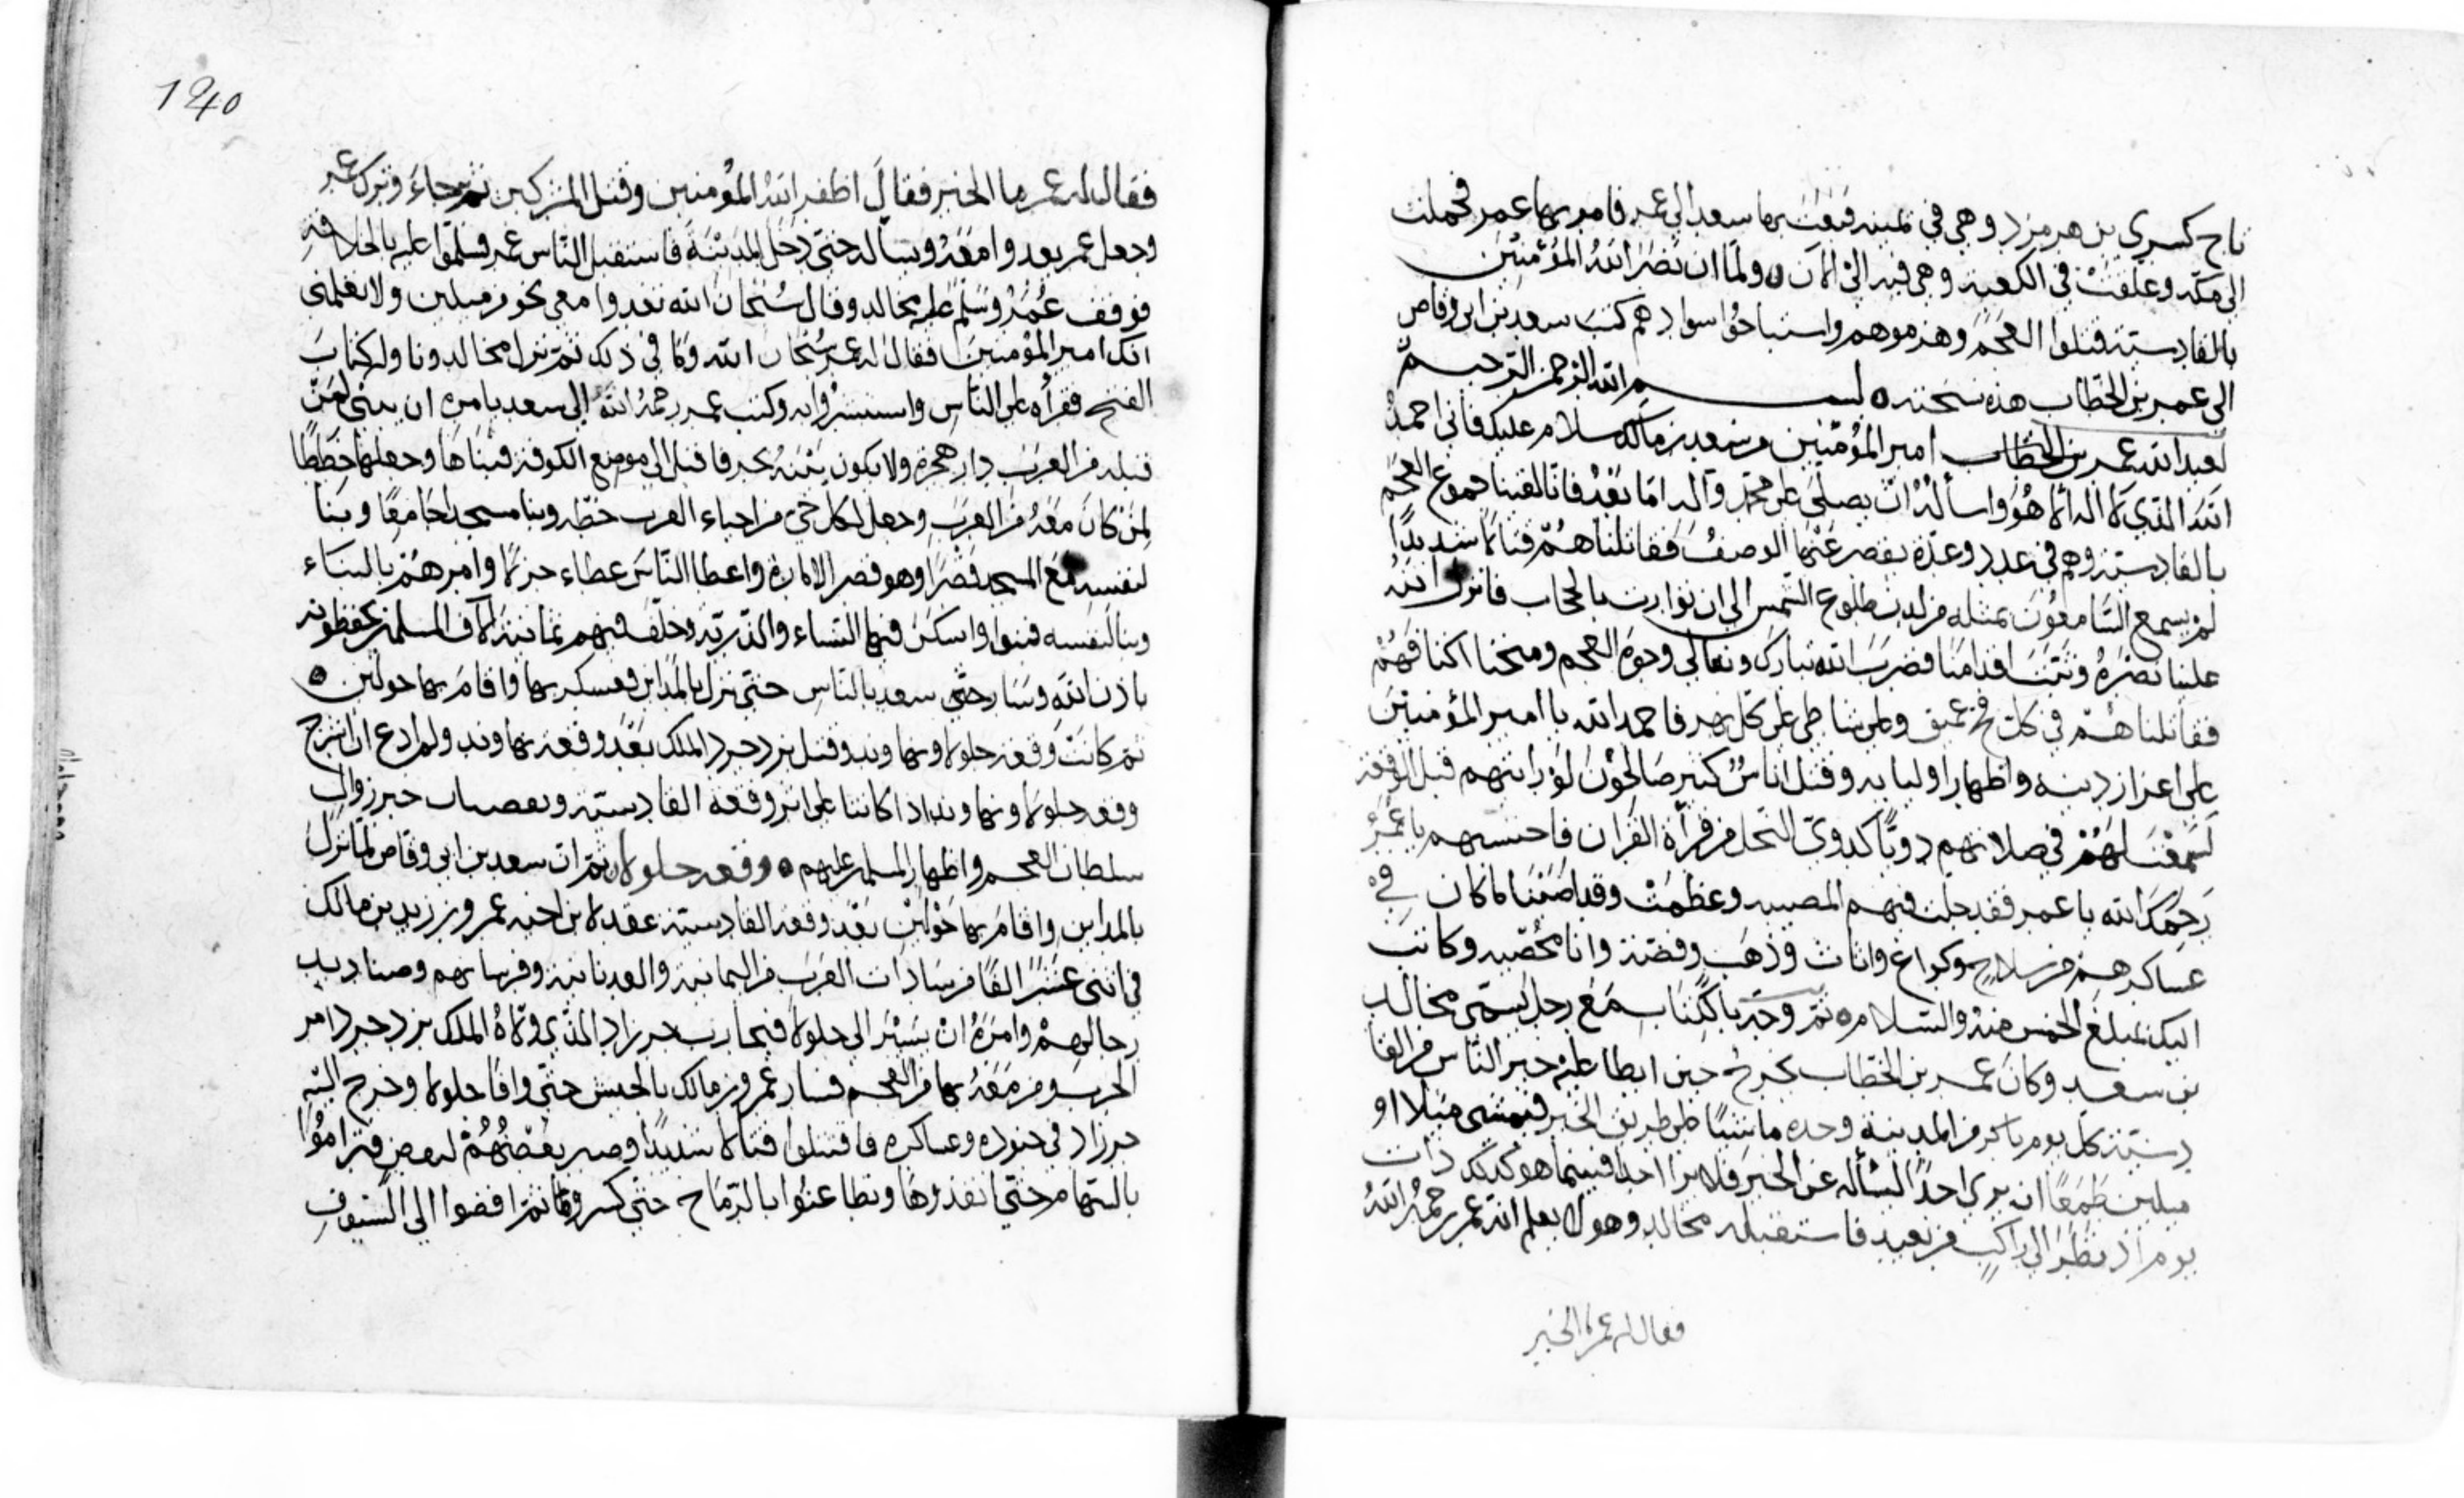 تاج كسرى بن هرمزد وهي في ثمينه فبعث بها سعد الى عمر فامر بها عمر فحملت
الى مكة وعلقت في الكعبة وهي فيه الى الآن ٥ ولما ان نصَر اللهُ المؤمنين
بالقادسية فقتلوا العجَم وهزموهم واستباحُوا سوادهم كتبَ سعد بن ابي وقاص
الى عمر بن الخطاب هذه نسخته ٥ بسم الله الرحمن الرحيم
لعبد الله عمر بن الخطاب امير المؤمنين من سعد بن مالك سلام عليك فاني احمدُ
اللهَ الذي لا اله الا هُو واسألهُ ان يصلي على محمد وآله اما بَعْدُ فانا لقينا جموع العجَم
بالقادسية وهم في عدد وعدّة يقصر عنها الوصفُ فقاتلناهُمْ قتالا شديدًا
لم يسمع السّامعُون بمثله من لدن طلوع الشمس الى ان توارت بالحجاب فانزل اللهُ
علينا نصْرَهُ وثبّتَ اقدامَنا فضربَ الله تبارك وتعالى وجوهَ العجم ومنحنا اكتافهُمْ
فقاتلناهُمْ في كل فج عميق وعلى شاطي على كل نهر فاحمد الله يا امير المؤمنين
على اعزاز دينه واظهار اوليايه وقتل اناسٌ كثير صَالحُونَ لوْ رايتهم قبل الوقعة
لسمعْتَ لهُمْ في صلاتهم دويًّا كدويّ النحل من قرأة القران فاحتسبهم يا عُمَرُ
رَحِمَكَ الله يا عمر فقد جلّت فيهم المصيبه وعظمتْ وقد اصَبْنَا ما كان في
عساكرهمْ من سلاح وكراع واثاث وذهَب وفضة وانا مُحْصيه وكاتبٌ
اليك بمبلغ الخمس منهُ والسلام ٥ ثم وجّه بالكتاب مَعَ رجل يُسمّى مخالد
بن سعد وكانَ عمر بن الخطاب يخرجُ حين ابطا عليْه خبر الناس من القا
دسية كل يوم باكر من المدينة وحده ماشيًا على طريق الخبر فيمشي ميلا او
ميلين طَمَعًا ان يرى احدًا ليسْأله عن الخبَر فلا يرا احدا فبينما هو كذلك ذات
يوم اذ نظَرَ الى راكبٍ من بعيد فاستقبله مخالد وهو لا يعلم انه عمر رحمهُ اللهُ
فقال له عمر ما الخبر
1240
فقال له عمر ما الخبر فقالَ اظفر اللهُ المؤمنين وقتل المشركين ثم جاءَ وترك عمر
وجعل عمر يعدوا معَهُ ويسأله حتى دَخَل المدينة فاستقبل النّاس عمر وسلّموا عليه بالخلافة
فوقف عُمَرُ وسَلّم عليه مخالد وقال سُبْحان الله تعدوا معي نحو من ميلين ولا تعلمني
انك امير المؤمنينَ فقال له عمر سُبْحان الله وما في ذلك ثم نزل مخالد وناوله كتابَ
الفتح فقرأه على الناسِ واستبشرُوا به وكتب عمر رحمهُ اللهُ الى سعد يامره ان يبني لمَنْ
قبله من العرَب دار هجرة ولا يكون بيْنَهُ بحر فاقبل الى موضع الكوفة فبناهَا وجعلها خِطَطًا
لمن كانَ معَهُ منَ العرَبِ وجعل لكل حيّ من احياء العرب خطّه وبنا مسجدا جَامعًا وبنا
لنفسه معَ المسجد قصْرًا وهو قصر الامارة واعطا النّاسَ عطاء جزلا وامرهُمْ بالبناء
وبنا لنفسه فبنوا واسكنَ فيها النساء والذّرية وخلّف فيهم ثمانية آلاف المسلمين يحفظونه
باذن الله وسَار حتى سعد بالنّاسِ حتى نزل بالمَداين وعسكر بها واقامَ بها حولين ٥
ثم كانَتْ وقعة جلولا ونهاوند وقتل يزدجرد الملك بعْدَ وقعة نهاوند ولم ادع ان اشرح
وقعه جلولا ونهاوند اذا كانتا على اثر وقعة القادسية وبعصهاب خبر زوال
سلطان العجم واظهار المسلمين عليهم ٥ وقعه جلولا ثم ان سعد بن ابي وقاص لما نزلَ
بالمداين واقامَ بها حَوْلَيْن بَعْد وقعه القادسية عقد لابن اخيه عمرو بن زيد بن مالك
في اثنى عشَرَ الفًا من سَادَات العَرَب من اليمانية والعدنانية وفرسانهم وصناديد
رجالهمْ وامرَهُ انْ يَسيْرَ الى جلولا فيحارب حرزاد الذي ولّاهُ الملك يزدجرد امر
الحرب ومن مَعَهُ بها من العجم فسار عمرو بن مالك بالجيش حتى وافا جلولا وخرج اليْه
حرزاد في جنوده وعساكره فاقتتلوا قتالا شديدًا وصبر بعْضُهُمْ لبعض فترامُوا
بالسّهام حتى انفذوْها وتطاعنُوا بالرّماح حتى كسروها ثم افضوا الى السّيوف